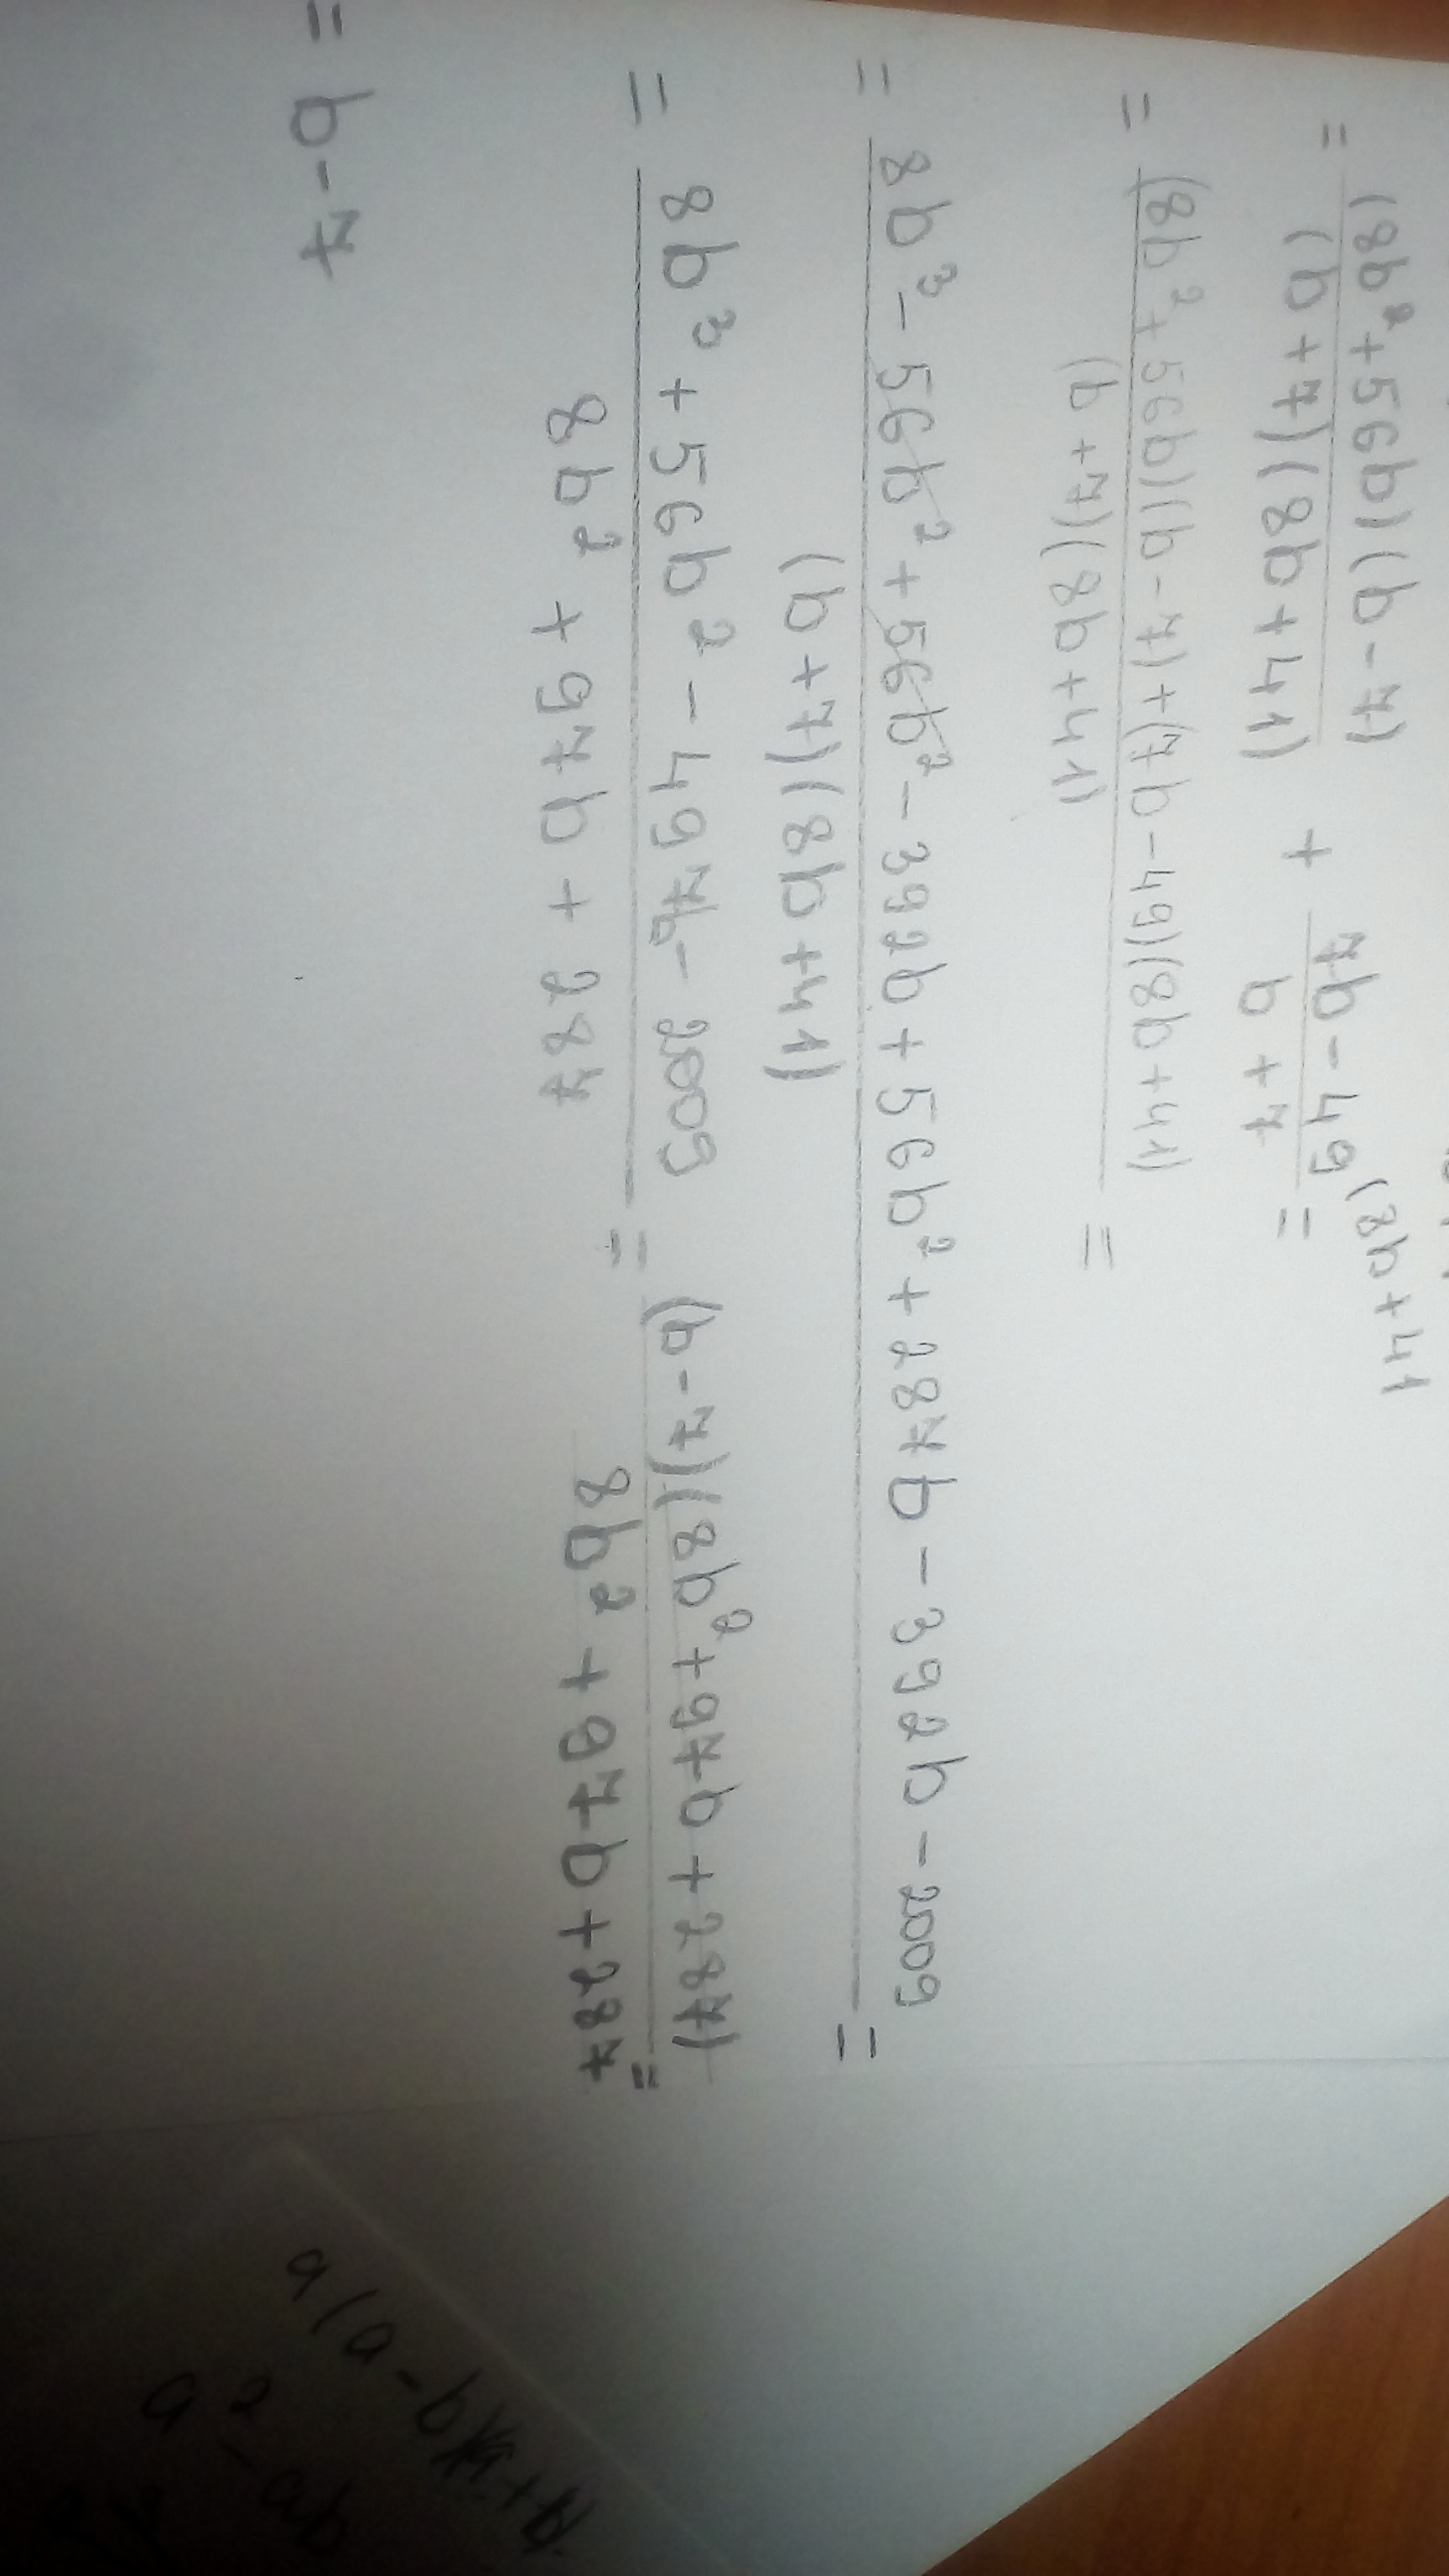 = (8b²+56b)(b-7) / (b+7)(8b+41) + 7b-49 / b+7 (8b+41 =
= (8b²+56b)(b-7)+(7b-49)(8b+41) / (b+7)(8b+41) =
= 8b³-56b²+56b²-392b+56b²+287b-392b-2009 / (b+7)(8b+41) =
= 8b³+56b²-497b-2009 / 8b²+97b+287 = (b-7)(8b²+97b+287) / 8b²+97b+287 =
= b-7
a(a-b)
a²-ab